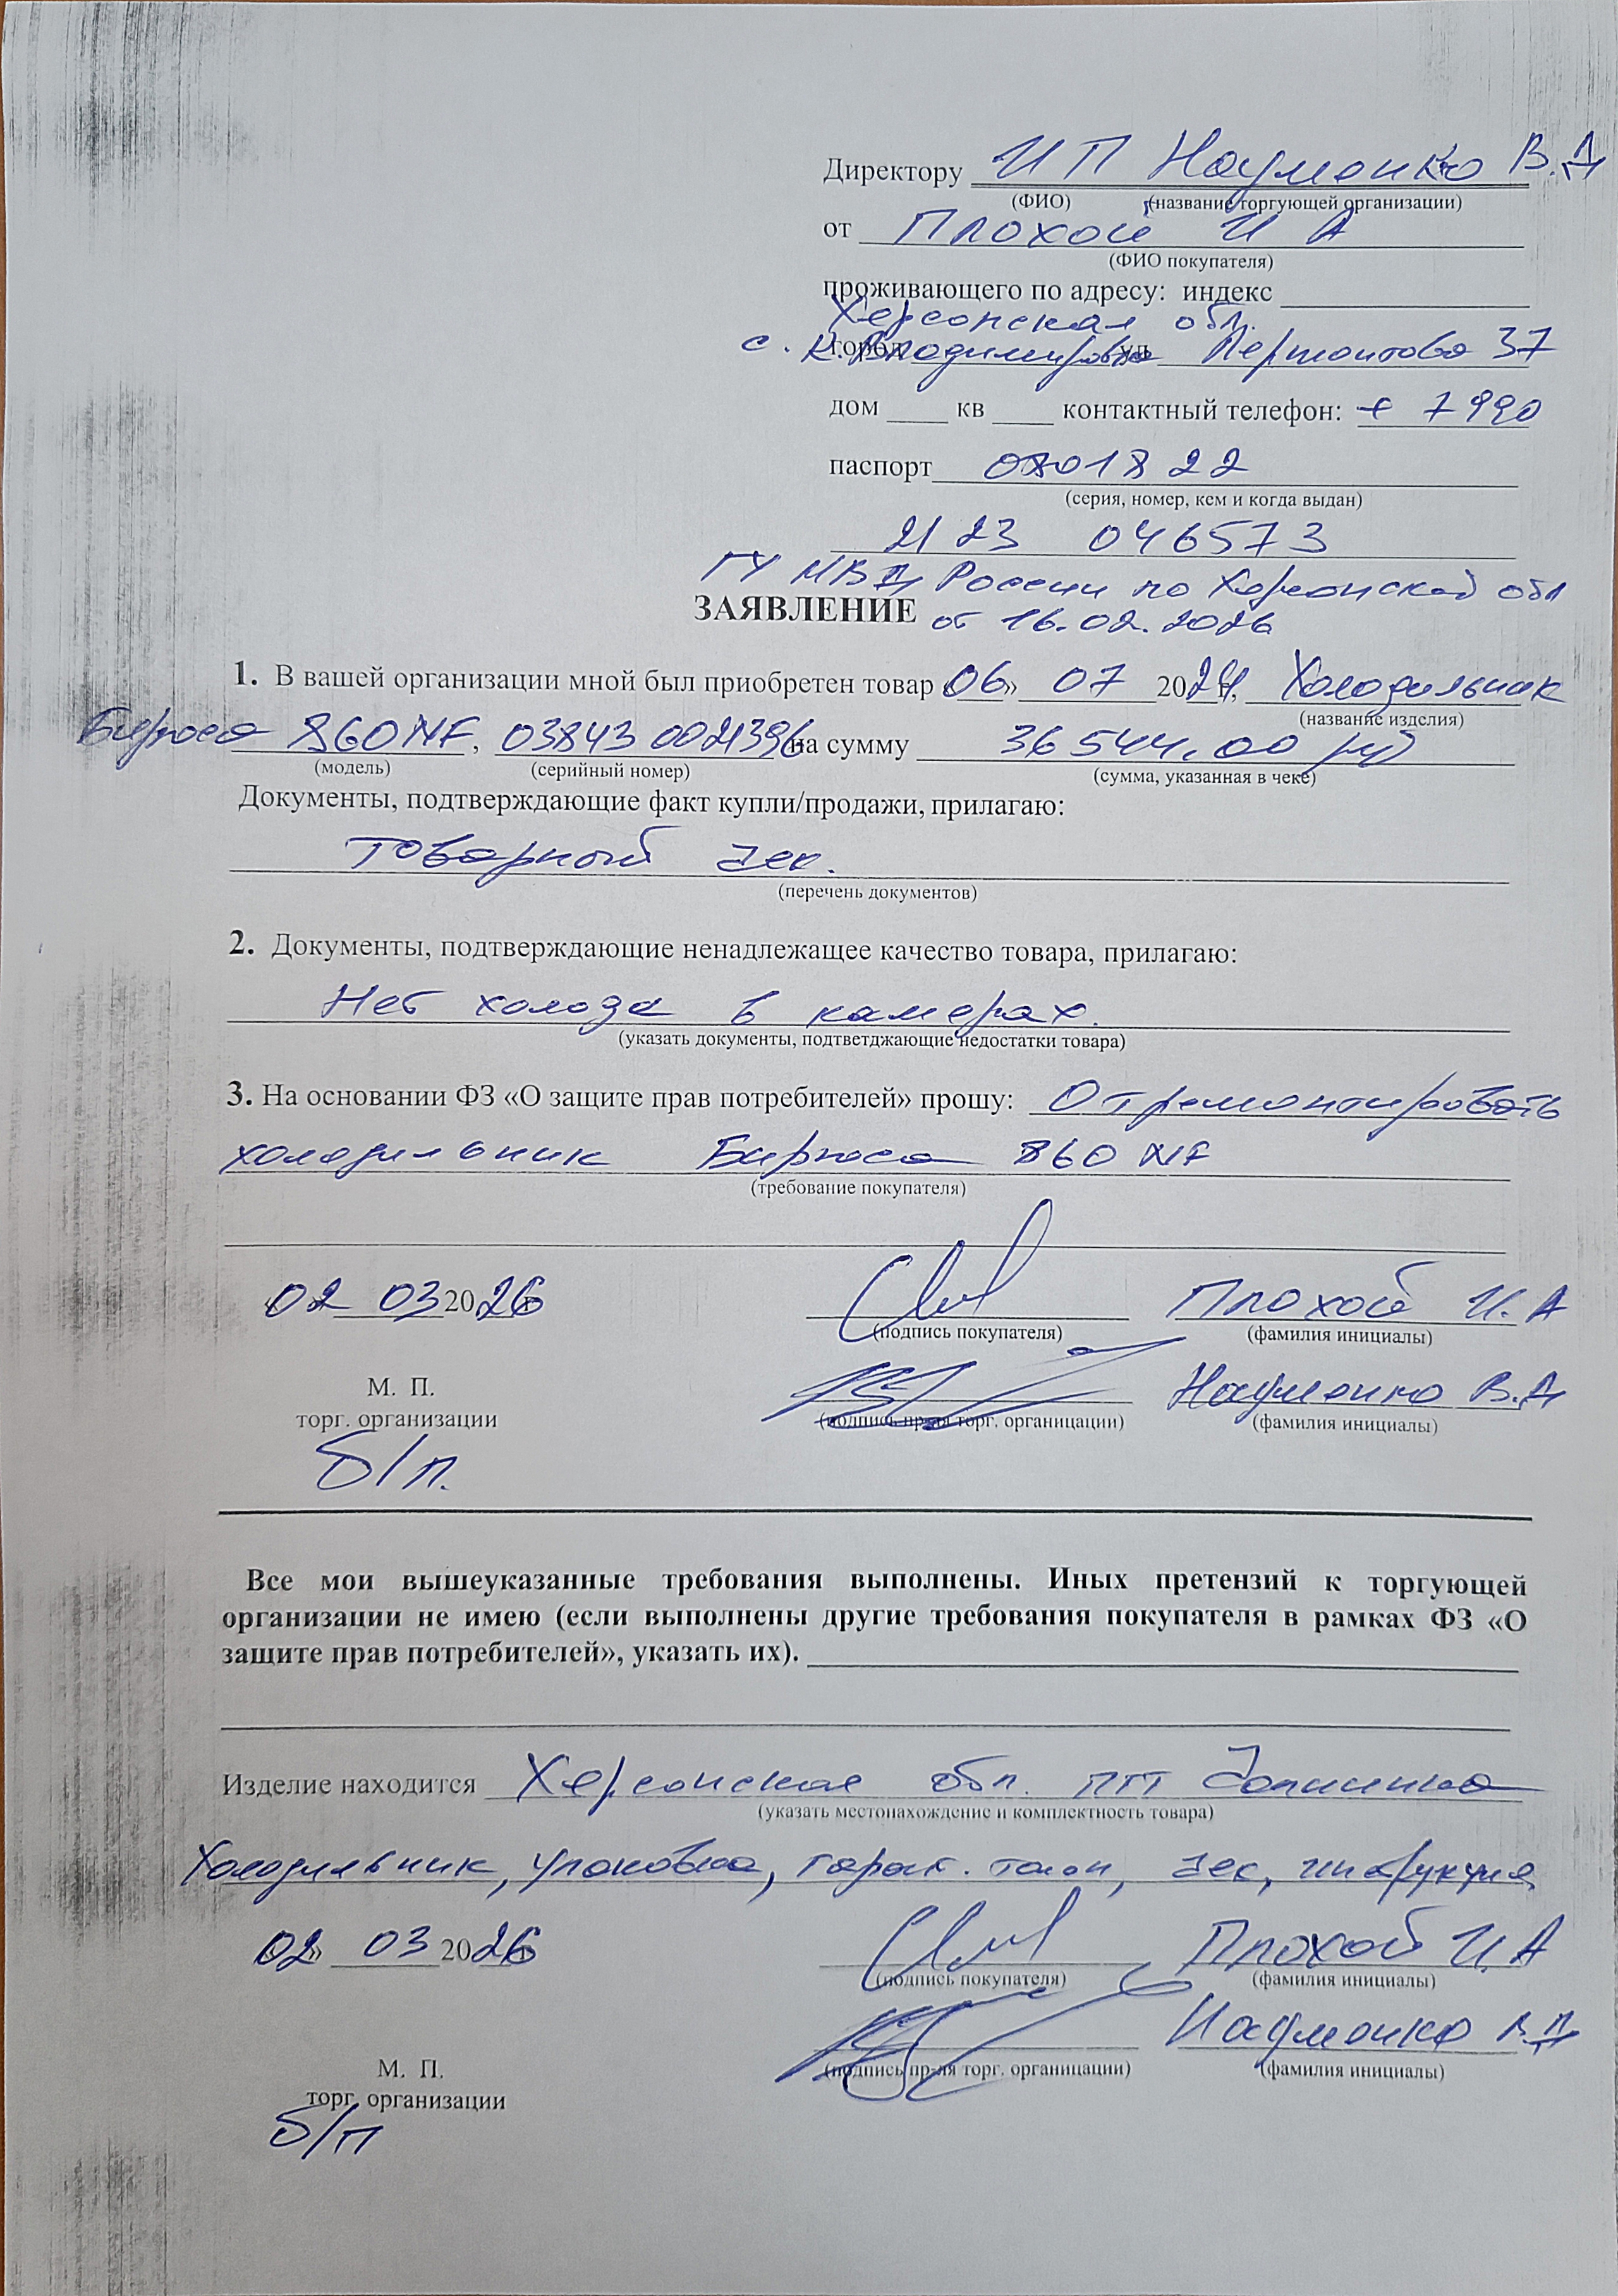 Директору ИП Науменко В.Д
(ФИО) (название торгующей организации)
от Плохой И А
(ФИО покупателя)
проживающего по адресу: индекс
Херсонская обл.
с. город Владимировка ул Лермонтова 37
дом кв контактный телефон: + 7990
паспорт 0801822
(серия, номер, кем и когда выдан)
2123 046573
ГУ МВД России по Херсонской обл
ЗАЯВЛЕНИЕ от 16.02.2026
1. В вашей организации мной был приобретен товар «06» 07 2024, Холодильник
(название изделия)
Бирюса 860NF, 03843 0021396 на сумму 36544,00 руб
(модель) (серийный номер) (сумма, указанная в чеке)
Документы, подтверждающие факт купли/продажи, прилагаю:
Товарный чек.
(перечень документов)
2. Документы, подтверждающие ненадлежащее качество товара, прилагаю:
Нет холода в камерах.
(указать документы, подтветджающие недостатки товара)
3. На основании ФЗ «О защите прав потребителей» прошу: Отремонтировать
холодильник Бирюса 860 NF
(требование покупателя)
02 03 2026 Плохой И.А
(подпись покупателя) (фамилия инициалы)
М. П. Науменко В.Д
торг. организации (подпись пр-ля торг. органицации) (фамилия инициалы)
б/п.
Все мои вышеуказанные требования выполнены. Иных претензий к торгующей
организации не имею (если выполнены другие требования покупателя в рамках ФЗ «О
защите прав потребителей», указать их).
Изделие находится Херсонская обл. пгт Чаплинка
(указать местонахождение и комплектность товара)
Холодильник, упаковка, гарант. талон, чек, инструкция
«02» 03 2026 Плохой И.А
(подпись покупателя) (фамилия инициалы)
Науменко В.Д
М. П. (подпись пр-ля торг. органицации) (фамилия инициалы)
торг. организации
б/п